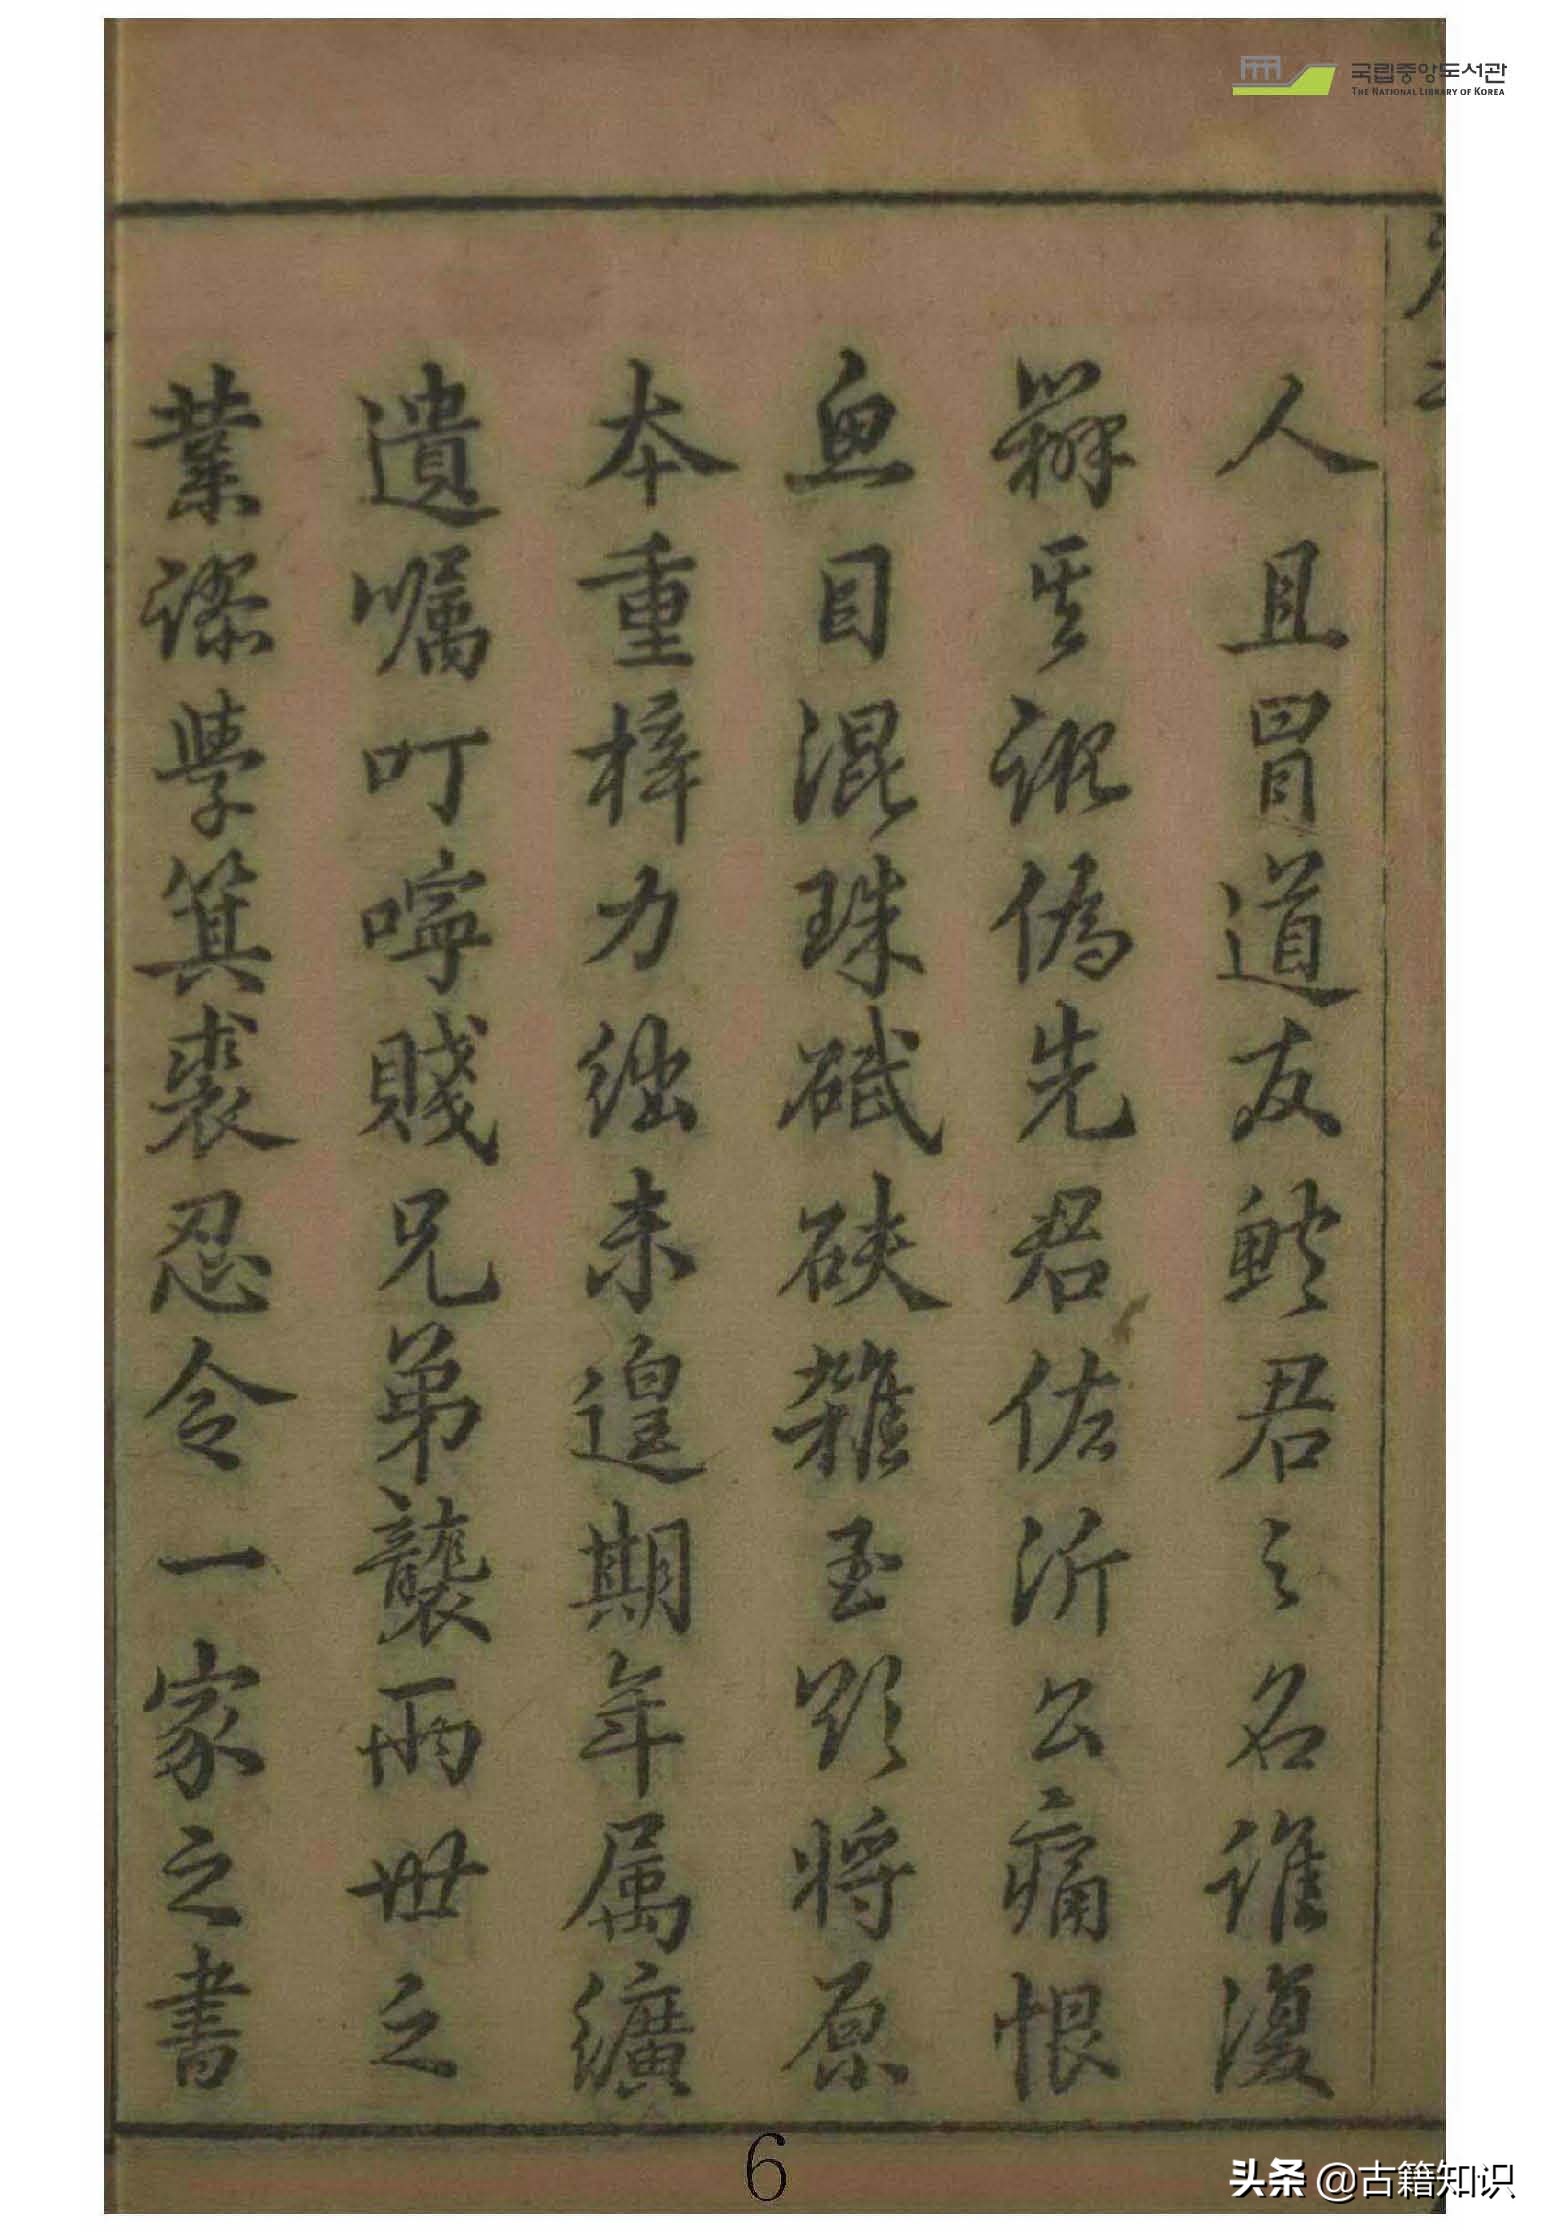 국립중앙도서관
THE NATIONAL LIBRARY OF KOREA
人且冒道友君之名誰復
辨其訛偽先君佐沂公痛恨
魚目混珠碔砆雜玉將原
本重梓力絀未遑期年属纊
遺囑叮嚀賤兄弟襲兩世之
業謬學箕裘忍令一家之書
6
头条 @古籍知识